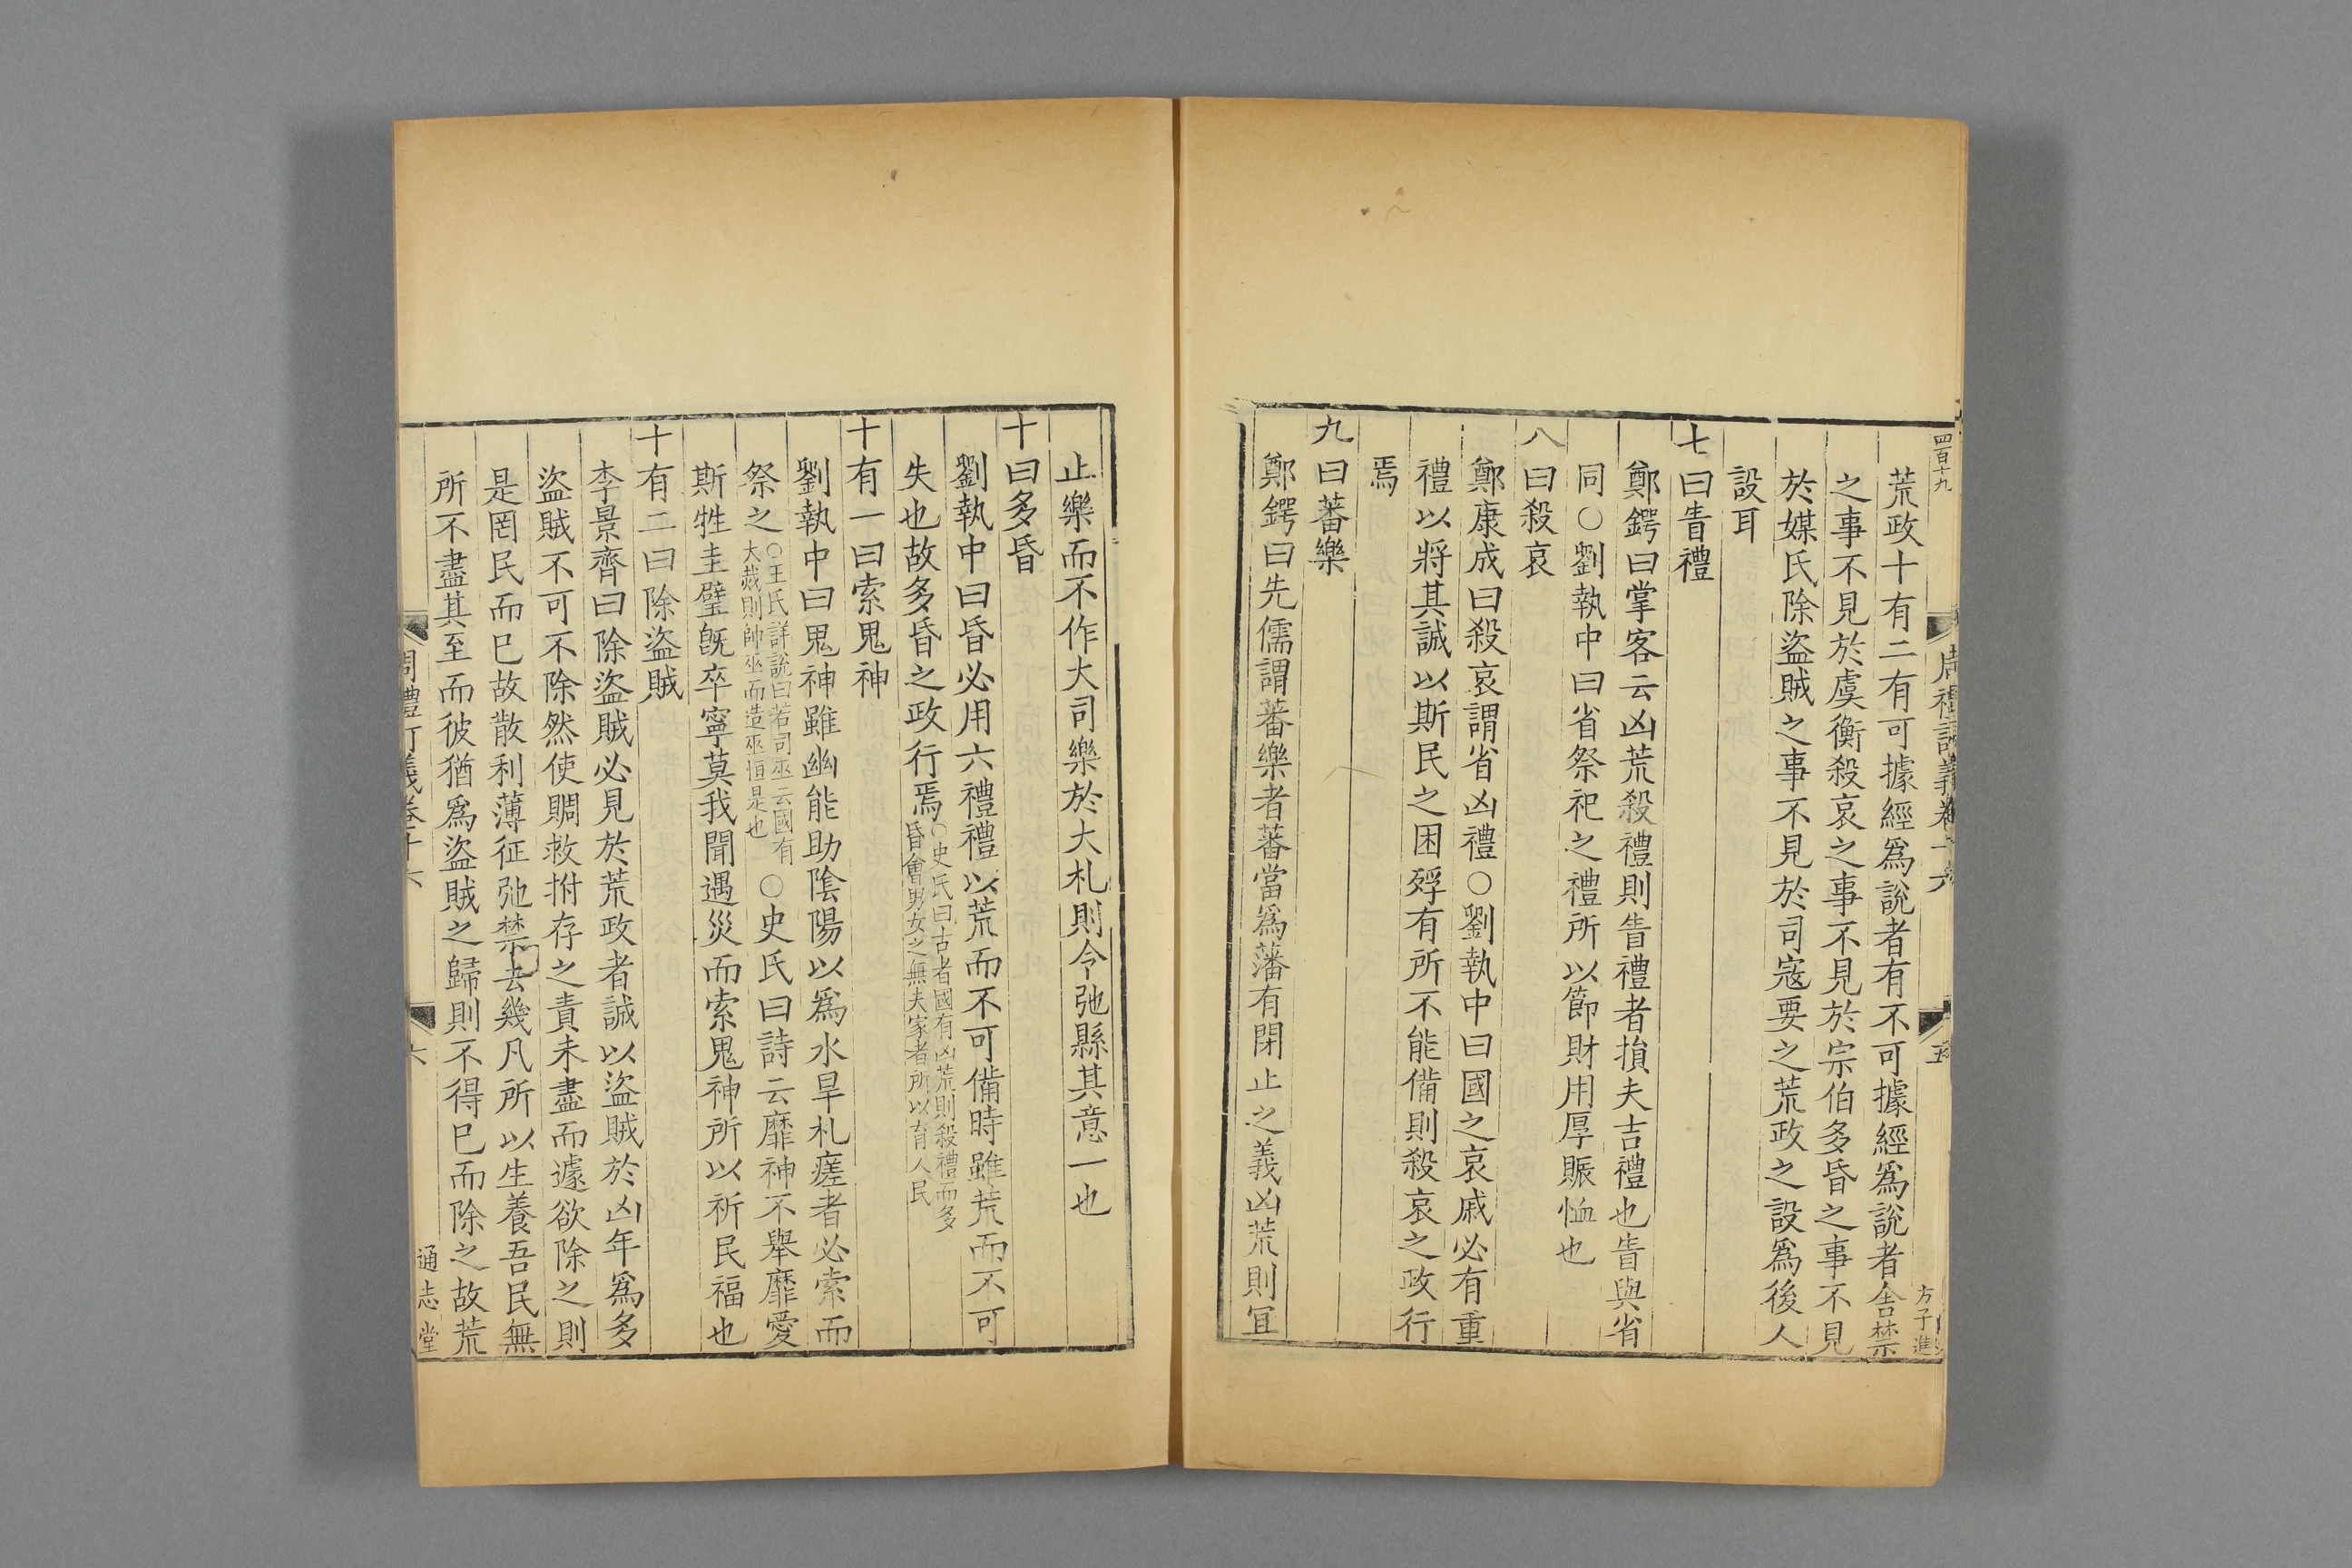 四百十九
周禮訂義卷十六
五
方子進
荒政十有二有可據經爲說者有不可據經爲說者舍禁
之事不見於虞衡殺哀之事不見於宗伯多昏之事不見
於媒氏除盜賊之事不見於司寇要之荒政之設爲後人
設耳
七曰眚禮
鄭鍔曰掌客云凶荒殺禮則眚禮者損夫吉禮也眚與省
同○劉執中曰省祭祀之禮所以節財用厚賑恤也
八曰殺哀
鄭康成曰殺哀謂省凶禮○劉執中曰國之哀戚必有重
禮以將其誠以斯民之困殍有所不能備則殺哀之政行
焉
九曰蕃樂
鄭鍔曰先儒謂蕃樂者蕃當爲藩有閉止之義凶荒則宜
止樂而不作大司樂於大札則令弛縣其意一也
十曰多昏
劉執中曰昏必用六禮禮以荒而不可備時雖荒而不可
失也故多昏之政行焉○史氏曰古者國有凶荒則殺禮而多
昏會男女之無夫家者所以育人民
十有一曰索鬼神
劉執中曰鬼神雖幽能助陰陽以爲水旱札瘥者必索而
祭之○王氏詳說曰若司巫云國有
大烖則帥巫而造巫恒是也○史氏曰詩云靡神不舉靡愛
斯牲圭璧旣卒寧莫我聞遇災而索鬼神所以祈民福也
十有二曰除盜賊
李景齊曰除盜賊必見於荒政者誠以盜賊於凶年爲多
盜賊不可不除然使賙救拊存之責未盡而遽欲除之則
是罔民而已故散利薄征弛禁去幾凡所以生養吾民無
所不盡其至而彼猶爲盜賊之歸則不得已而除之故荒
周禮訂義卷十六
六
通志堂